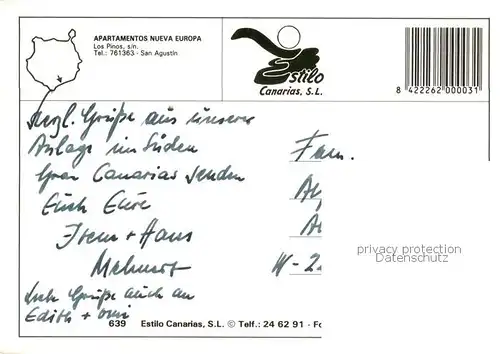 APARTAMENTOS NUEVA EUROPA
Los Pinos, s/n.
Tel.: 761363 - San Agustín
Estilo
Canarias, S.L.
8 422262 000031
Herzl. Grüße aus unserer
Anlage im Süden
Gran Canarias senden
Euch Eure
+ Hans
Fam.
W-2
privacy protection
Datenschutz
Liebe Grüße auch an
Edith + Omi
639 Estilo Canarias, S.L. © Telf.: 24 62 91 - Fo